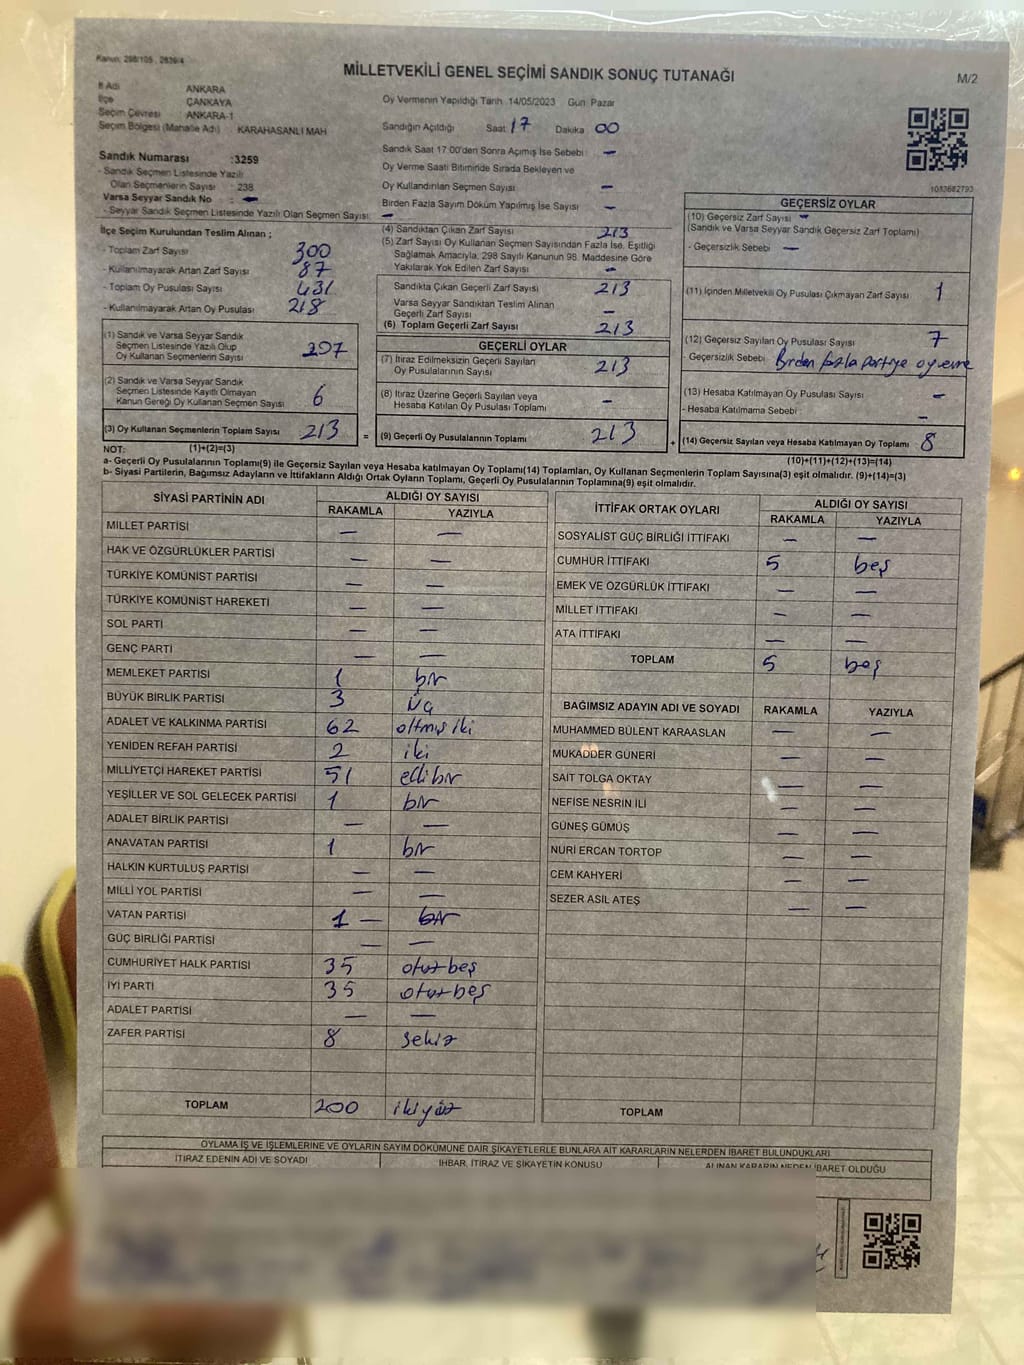 Kanun: 298/105 , 2839/4
MİLLETVEKİLİ GENEL SEÇİMİ SANDIK SONUÇ TUTANAĞI
M/2
İl Adı ANKARA
İlçe ÇANKAYA
Seçim Çevresi ANKARA-1
Seçim Bölgesi (Mahalle Adı) KARAHASANLI MAH
Sandık Numarası :3259
- Sandık Seçmen Listesinde Yazılı
Olan Seçmenlerin Sayısı : 238
Varsa Seyyar Sandık No : -
- Seyyar Sandık Seçmen Listesinde Yazılı Olan Seçmen Sayısı: -
Oy Vermenin Yapıldığı Tarih 14/05/2023 Gün Pazar
Sandığın Açıldığı Saat 17 Dakika 00
Sandık Saat 17:00'den Sonra Açımış İse Sebebi : -
Oy Verme Saati Bitiminde Sırada Bekleyen ve
Oy Kullandırılan Seçmen Sayısı : -
Birden Fazla Sayım Döküm Yapılmış İse Sayısı : -
1033682793
İlçe Seçim Kurulundan Teslim Alınan ;
- Toplam Zarf Sayısı 300
- Kullanılmayarak Artan Zarf Sayısı 87
- Toplam Oy Pusulası Sayısı 431
- Kullanılmayarak Artan Oy Pusulası 218
(1) Sandık ve Varsa Seyyar Sandık
Seçmen Listesinde Yazılı Olup
Oy Kullanan Seçmenlerin Sayısı 207
(2) Sandık ve Varsa Seyyar Sandık
Seçmen Listesinde Kayıtlı Olmayan
Kanun Gereği Oy Kullanan Seçmen Sayısı 6
(3) Oy Kullanan Seçmenlerin Toplam Sayısı 213
(1)+(2)=(3)
(4) Sandıktan Çıkan Zarf Sayısı 213
(5) Zarf Sayısı Oy Kullanan Seçmen Sayısından Fazla İse, Eşitliği
Sağlamak Amacıyla, 298 Sayılı Kanunun 98. Maddesine Göre
Yakılarak Yok Edilen Zarf Sayısı -
Sandıkta Çıkan Geçerli Zarf Sayısı 213
Varsa Seyyar Sandıktan Teslim Alınan
Geçerli Zarf Sayısı -
(6) Toplam Geçerli Zarf Sayısı 213
GEÇERLİ OYLAR
(7) İtiraz Edilmeksizin Geçerli Sayılan
Oy Pusulalarının Sayısı 213
(8) İtiraz Üzerine Geçerli Sayılan veya
Hesaba Katılan Oy Pusulası Toplamı -
= (9) Geçerli Oy Pusulalarının Toplamı 213
GEÇERSİZ OYLAR
(10) Geçersiz Zarf Sayısı -
(Sandık ve Varsa Seyyar Sandık Geçersiz Zarf Toplamı)
- Geçersizlik Sebebi -
(11) İçinden Milletvekili Oy Pusulası Çıkmayan Zarf Sayısı 1
(12) Geçersiz Sayılan Oy Pusulası Sayısı 7
Geçersizlik Sebebi Birden fazla partiye oy verme
(13) Hesaba Katılmayan Oy Pusulası Sayısı -
- Hesaba Katılmama Sebebi -
+ (14) Geçersiz Sayılan veya Hesaba Katılmayan Oy Toplamı 8
(10)+(11)+(12)+(13)=(14)
NOT:
a- Geçerli Oy Pusulalarının Toplamı(9) ile Geçersiz Sayılan veya Hesaba katılmayan Oy Toplamı(14) Toplamları, Oy Kullanan Seçmenlerin Toplam Sayısına(3) eşit olmalıdır. (9)+(14)=(3)
b- Siyasi Partilerin, Bağımsız Adayların ve İttifakların Aldığı Ortak Oyların Toplamı, Geçerli Oy Pusulalarının Toplamına(9) eşit olmalıdır.
SİYASİ PARTİNİN ADI ALDIĞI OY SAYISI
RAKAMLA YAZIYLA
MİLLET PARTİSİ - -
HAK VE ÖZGÜRLÜKLER PARTİSİ - -
TÜRKİYE KOMÜNİST PARTİSİ - -
TÜRKİYE KOMÜNİST HAREKETİ - -
SOL PARTİ - -
GENÇ PARTİ - -
MEMLEKET PARTİSİ 1 bir
BÜYÜK BİRLİK PARTİSİ 3 Üç
ADALET VE KALKINMA PARTİSİ 62 altmış iki
YENİDEN REFAH PARTİSİ 2 iki
MİLLİYETÇİ HAREKET PARTİSİ 51 elli bir
YEŞİLLER VE SOL GELECEK PARTİSİ 1 bir
ADALET BİRLİK PARTİSİ - -
ANAVATAN PARTİSİ 1 bir
HALKIN KURTULUŞ PARTİSİ - -
MİLLİ YOL PARTİSİ - -
VATAN PARTİSİ 1 - bir
GÜÇ BİRLİĞİ PARTİSİ - -
CUMHURİYET HALK PARTİSİ 35 otuz beş
İYİ PARTİ 35 otuz beş
ADALET PARTİSİ - -
ZAFER PARTİSİ 8 sekiz
TOPLAM 200 iki yüz
İTTİFAK ORTAK OYLARI ALDIĞI OY SAYISI
RAKAMLA YAZIYLA
SOSYALİST GÜÇ BİRLİĞİ İTTİFAKI - -
CUMHUR İTTİFAKI 5 beş
EMEK VE ÖZGÜRLÜK İTTİFAKI - -
MİLLET İTTİFAKI - -
ATA İTTİFAKI - -
TOPLAM 5 beş
BAĞIMSIZ ADAYIN ADI VE SOYADI RAKAMLA YAZIYLA
MUHAMMED BÜLENT KARAASLAN - -
MUKADDER GÜNERİ - -
SAİT TOLGA OKTAY - -
NEFİSE NESRİN İLİ - -
GÜNEŞ GÜMÜŞ - -
NURİ ERCAN TORTOP - -
CEM KAHYERİ - -
SEZER ASİL ATEŞ - -
TOPLAM
OYLAMA İŞ VE İŞLEMLERİNE VE OYLARIN SAYIM DÖKÜMÜNE DAİR ŞİKAYETLERLE BUNLARA AİT KARARLARIN NELERDEN İBARET BULUNDUKLARI
İTİRAZ EDENİN ADI VE SOYADI İHBAR, İTİRAZ VE ŞİKAYETİN KONUSU ALINAN KARARIN NEDEN İBARET OLDUĞU